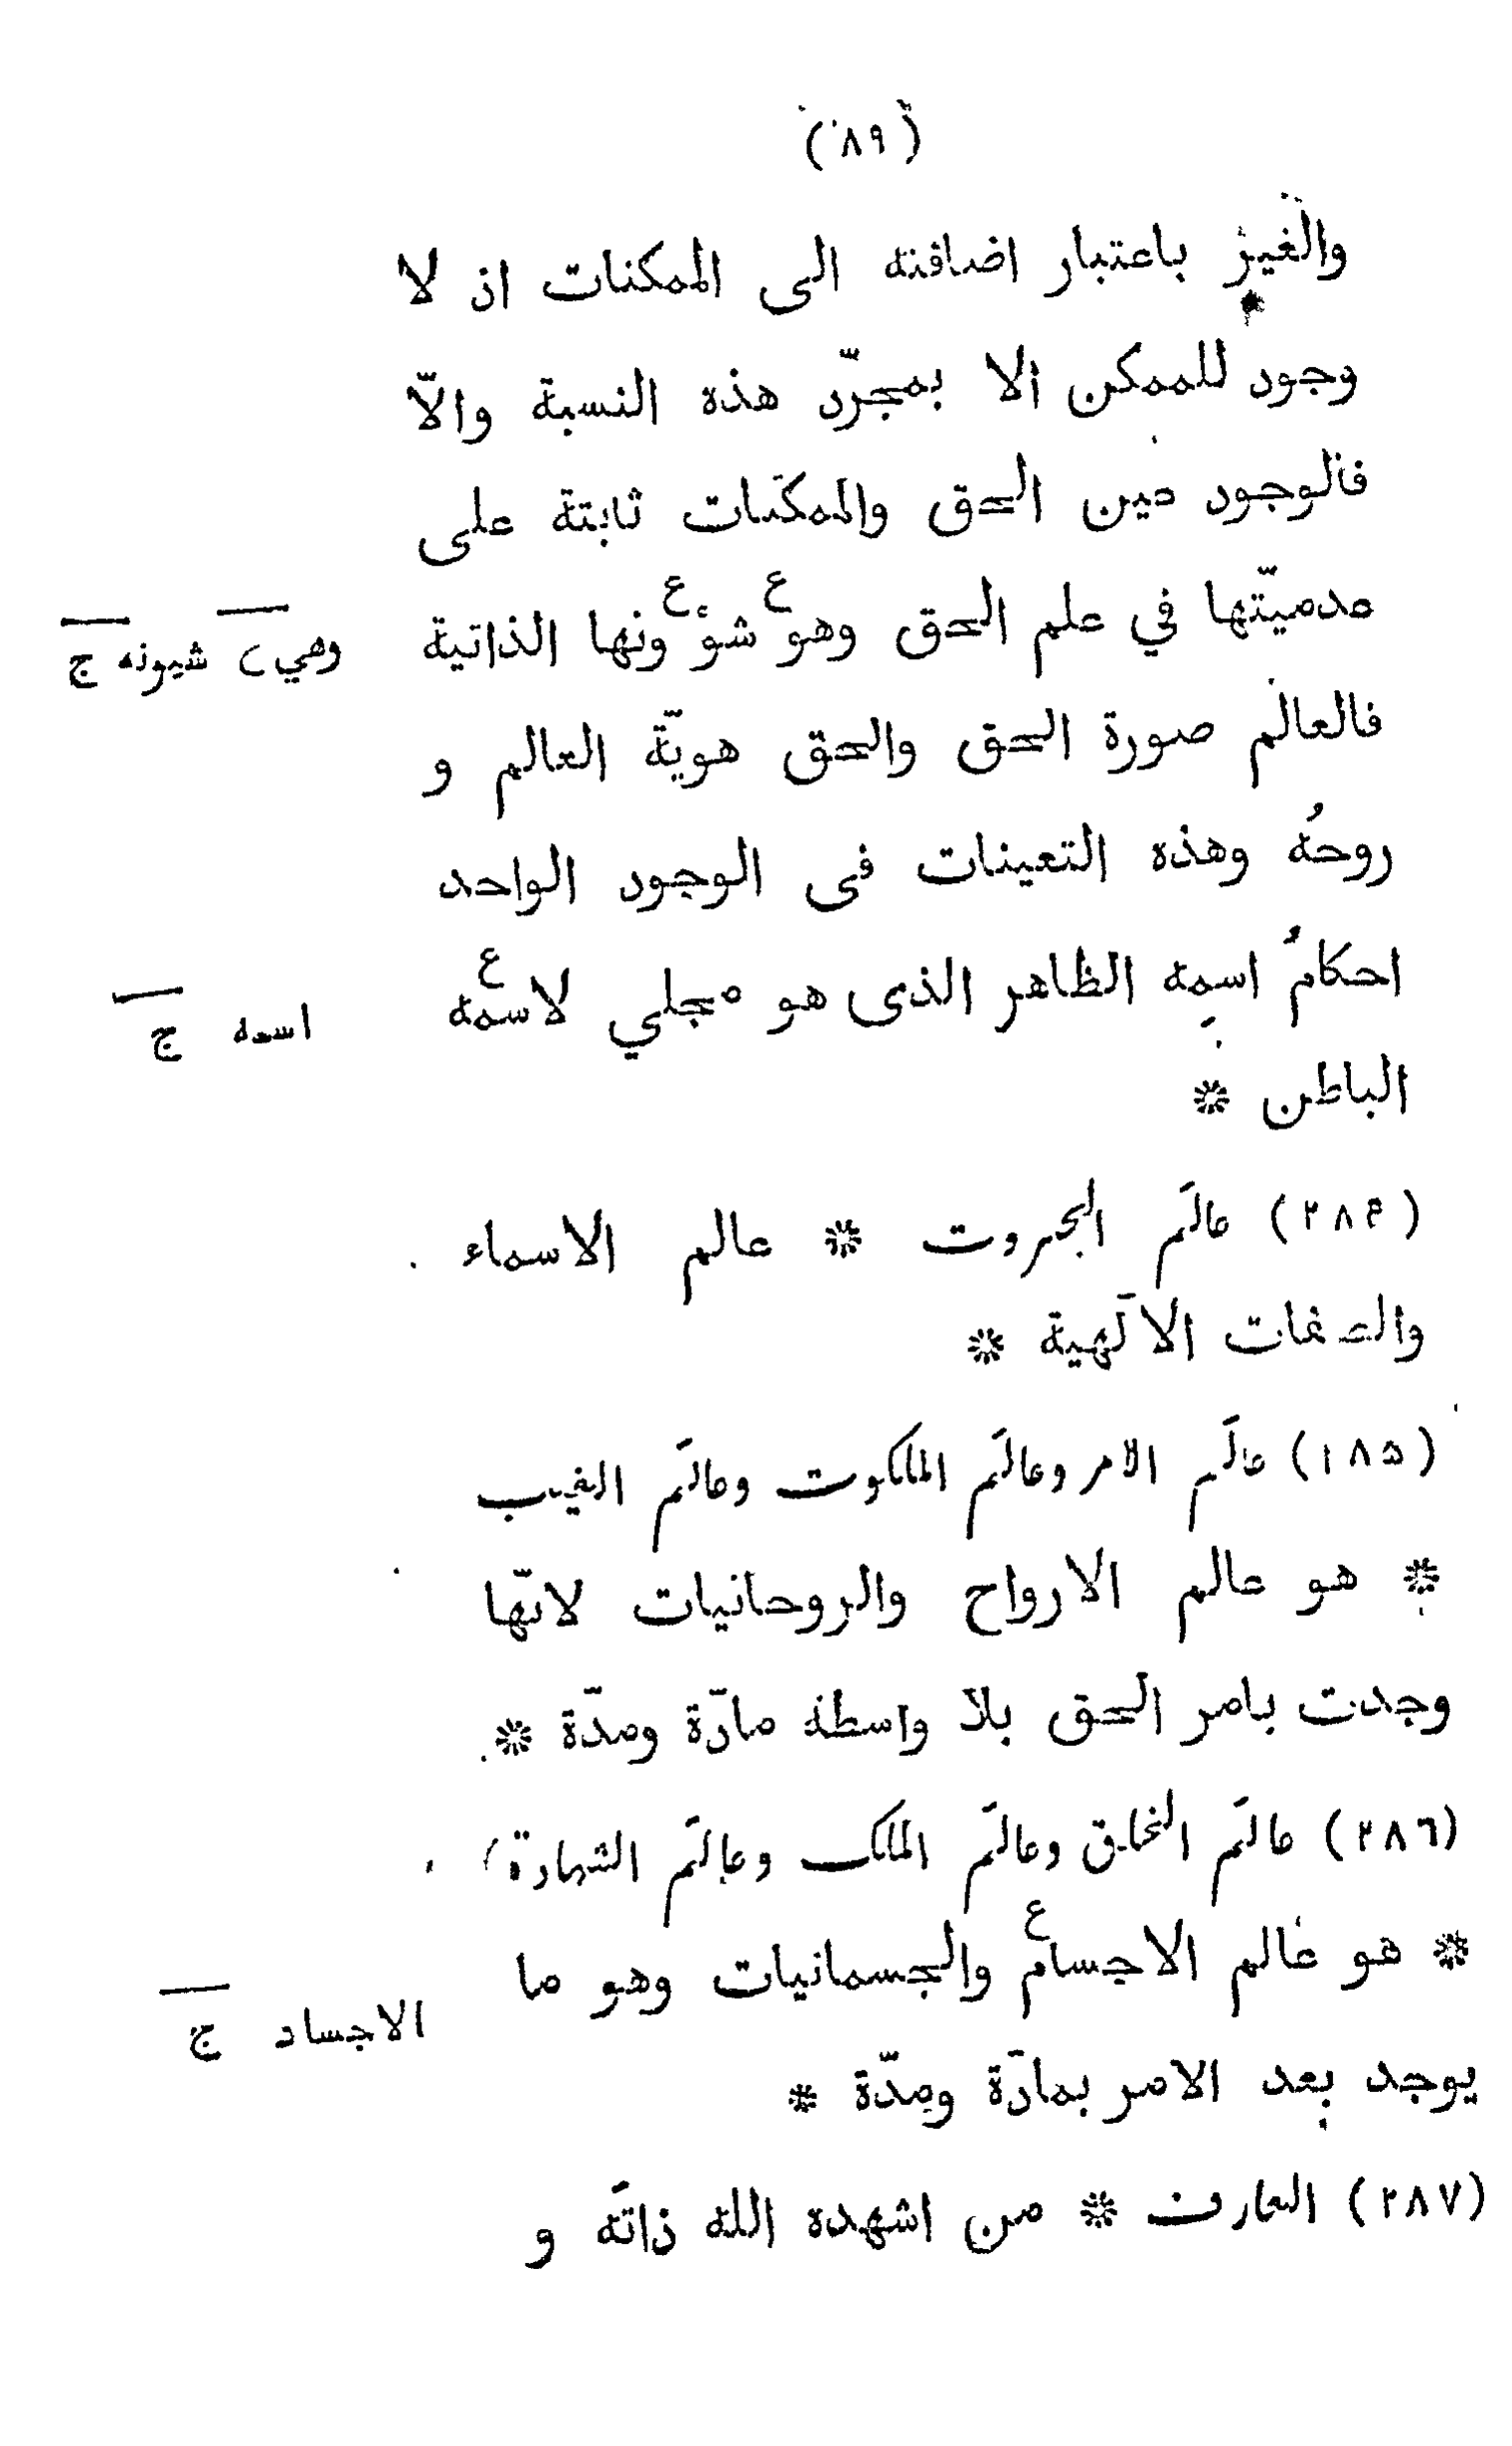 (٨٩)
والغير باعتبار اضافته الى الممكنات اذ لا
وجود للممكن الا بمجرّد هذه النسبة والاّ
فالوجود عين الحق والممكنات ثابتة على
عدميّتها في علم الحق وهو ع شؤونها ع الذاتية وهي ع شيونه ج
فالعالم صورة الحق والحق هويّة العالم و
روحهُ وهذه التعينات فى الوجود الواحد
احكامُ اسمِه الظاهر الذى هو مجلي لاسمه ع اسمه ج
الباطن *
(٢٨۴) عالَم الجبروت * عالم الاسماء
والصفات الالٓهية *
(٢٨۵) عالَم الامر وعالَم الملكوت وعالَم الغيب
* هو عالم الارواح والروحانيات لانّها
وجدت بامر الحق بلا واسطة مادّة ومدّة *
(٢٨٦) عالَم الخلق وعالَم الملك وعالَم الشهادة
* هو عالم الاجسام ع والجسمانيات وهو ما الاجساد ج
يوجد بعد الامر بمادّة ومدّة *
(٢٨٧) العارف * من اشهده الله ذاتَه و